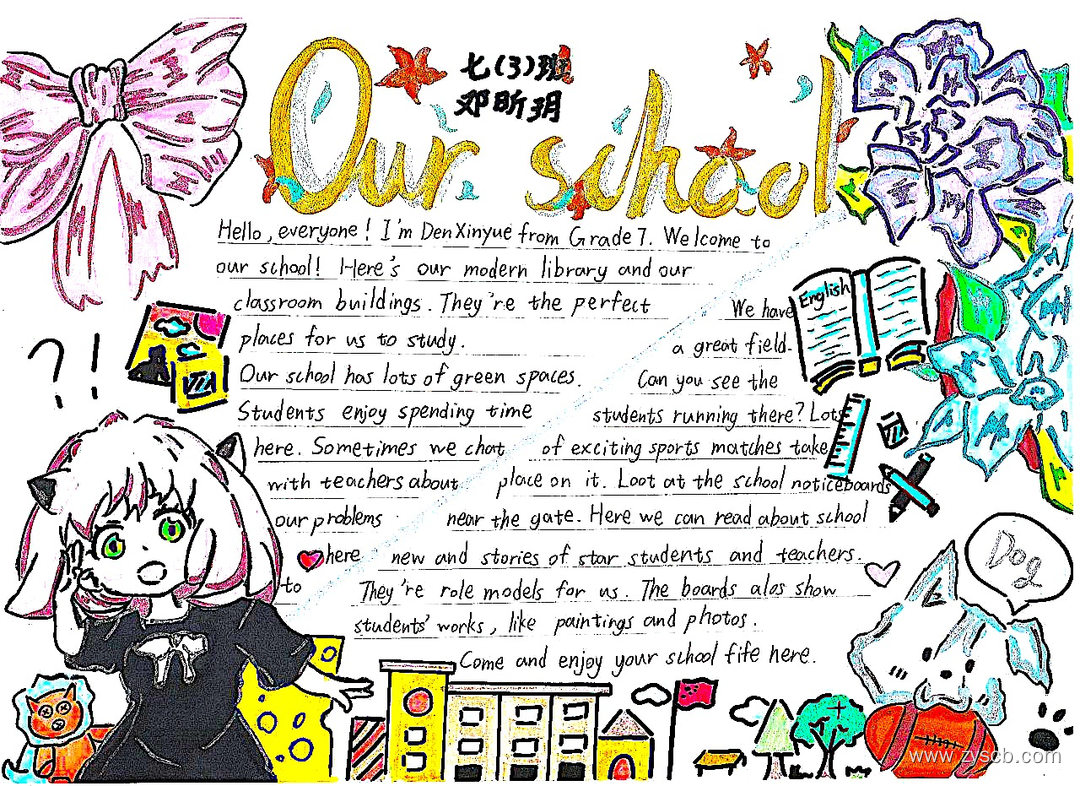 七(3)班
邓昕玥
Our school
Hello, everyone! I'm DenXinyue from Grade 7. Welcome to
our school! Here's our modern library and our
classroom buildings. They're the perfect
places for us to study.
Our school has lots of green spaces.
Students enjoy spending time
here. Sometimes we chat
with teachers about
our problems
here
to
We have
a great field.
Can you see the
students running there? Lots
of exciting sports matches take
place on it. Loot at the school noticeboards
near the gate. Here we can read about school
new and stories of star students and teachers.
They're role models for us. The boards alos show
students' works, like paintings and photos.
Come and enjoy your school fife here.
English
?!
Dog
www.zyscb.com